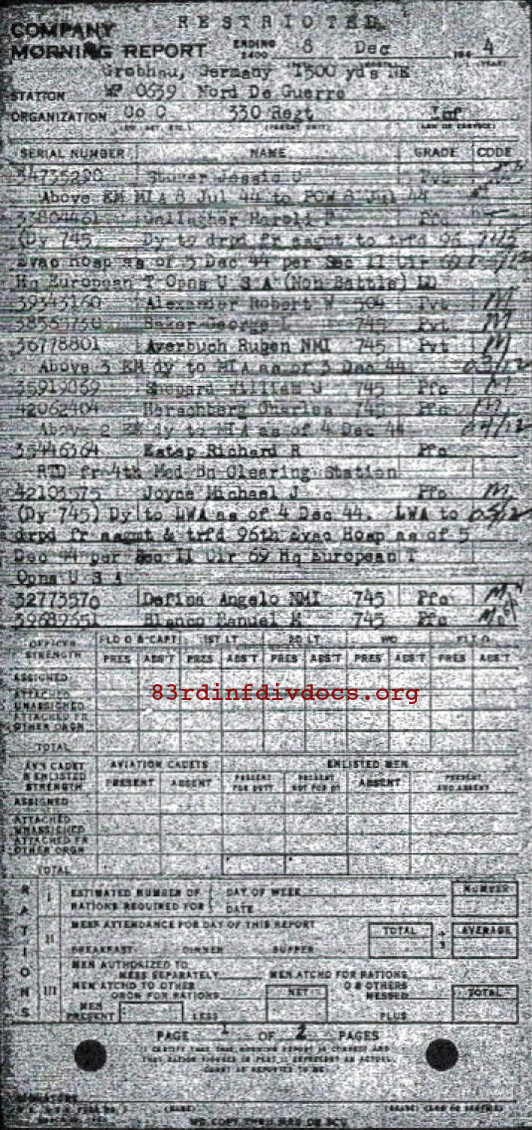 RESTRICTED
COMPANY
MORNING REPORT ENDING 2400 8 Dec 194 4
Grobhau, Germany 1500 yds NE
STATION WF 0639 Nord De Guerre
ORGANIZATION Co C 330 Regt Inf
SERIAL NUMBER NAME GRADE CODE
34735290 Jessie Pvt
Above EM MIA 8 Jul 44 to POW 8 Jul 44
33804461 Gallagher Harold P Pfc
(Dy 745 Dy to drpd fr asgmt to trfd 96
Evac Hosp as of 5 Dec 44 per Sec II Cir 69
Hq European T Opns U S A (Non Battle) LD
39343160 Alexander Robert W 504 Pvt M
38565730 Baker George L 745 Pvt M
36778801 Averbuch Ruben NMI 745 Pvt M
Above 3 EM dy to MIA as of 3 Dec 44
35919069 Shepard William 745 Pfc M
42062404 Herschberg Charles 745 Pfc M
Above 2 EM dy to MIA as of 4 Dec 44
35446364 Estep Richard R Pfc
RTD fr 4th Med Bn Clearing Station
42103575 Joyce Michael J Pfc M
(Dy 745) Dy to LWA as of 4 Dec 44. LWA to
drpd fr asgmt & trfd 96th Evac Hosp as of 5
Dec 44 per Sec II Cir 69 Hq European T
Opns U S A
32773570 Defina Angelo NMI 745 Pfc M
39689651 Blanco Manuel 745 Pfc M
OFFICER STRENGTH FLD O & CAPT 1ST LT 2D LT WO FLT O
PRES ABS'T PRES ABS'T PRES ABS'T PRES ABS'T PRES ABS'T
ASSIGNED
ATTACHED UNASSIGNED
83rdinfdivdocs.org
ATTACHED FR OTHER ORGN
TOTAL
AV'N CADET & ENLISTED STRENGTH AVIATION CADETS ENLISTED MEN
PRESENT ABSENT PRESENT FOR DUTY PRESENT NOT FOR DY ABSENT PRESENT AND ABSENT
ASSIGNED
ATTACHED UNASSIGNED
ATTACHED FR OTHER ORGN
TOTAL
RATIONS
I ESTIMATED NUMBER OF RATIONS REQUIRED FOR DAY OF WEEK DATE NUMBER
II MESS ATTENDANCE FOR DAY OF THIS REPORT TOTAL ÷ 3 AVERAGE
BREAKFAST DINNER SUPPER
III MEN AUTHORIZED TO MESS SEPARATELY MEN ATCHD FOR RATIONS
MEN ATCHD TO OTHER ORGN FOR RATIONS NET O & OTHERS MESSED TOTAL
MEN PRESENT LESS PLUS
PAGE 1 OF 2 PAGES
I CERTIFY THAT THIS MORNING REPORT IS CORRECT AND
SIGNATURE